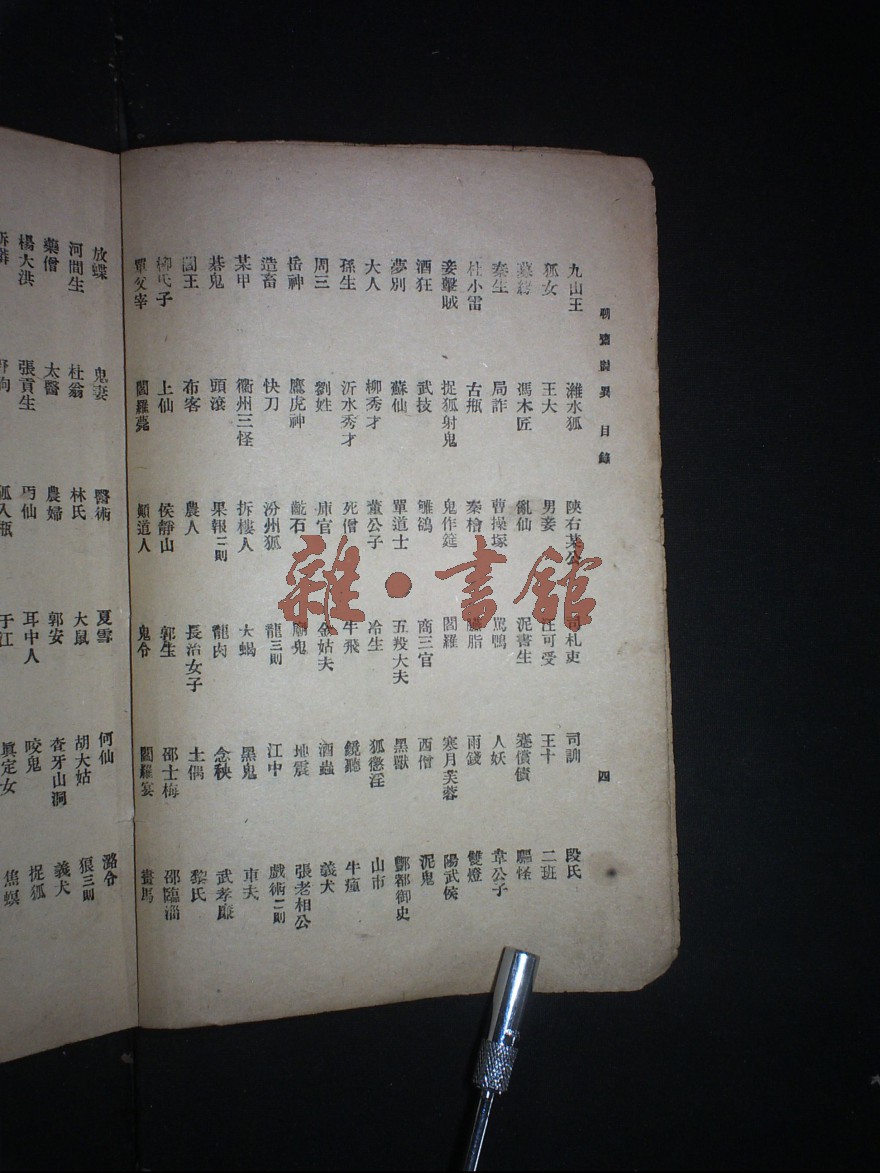 聊齋誌異 目錄 四
九山王 濰水狐 陝右某公 司札吏 司訓 段氏
狐女 王大 男妾 可受 王十 二班
馮木匠 亂仙 泥書生 蹇償債 驅怪
秦生 局詐 曹操塚 罵鴨 人妖 韋公子
杜小雷 古瓶 秦檜 臙脂 雨錢 雙燈
妾擊賊 捉狐射鬼 鬼作筵 閻羅 寒月芙蓉 陽武侯
酒狂 武技 雊鵒 商三官 西僧 泥鬼
夢別 蘇仙 單道士 五羖大夫 黑獸 酆都御史
大人 柳秀才 董公子 冷生 狐懲淫 山市
孫生 沂水秀才 死僧 牛飛 鏡聽 牛癀
周三 劉姓 庫官 金姑夫 酒蟲 義犬
岳神 鷹虎神 齕石 廟鬼 地震 張老相公
造畜 快刀 汾州狐 龍三則 江中 戲術二則
某甲 衢州三怪 拆樓人 大蝎 黑鬼 車夫
碁鬼 頭滾 果報二則 龍肉 念秧 武孝廉
閻王 布客 農人 長治女子 土偶 黎氏
柳氏子 上仙 侯靜山 郭生 邵士梅 邵臨淄
單父宰 閻羅薨 顛道人 鬼令 閻羅宴 畫馬
放蝶 鬼妻 醫術 夏雪 何仙 潞令
河間生 杜翁 林氏 大鼠 胡大姑 狼三則
藥僧 太醫 農婦 郭安 查牙山洞 義犬
楊大洪 張貢生 丐仙 耳中人 咬鬼 捉狐
狐入瓶 于江 眞定女 焦螟
雜·書館